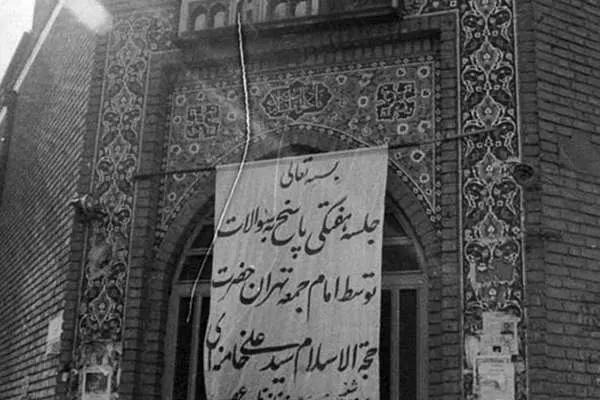 بسمه تعالی
جلسه هفتگی پاسخ به سوالات
توسط امام جمعه تهران حضرت
حجة الاسلام سید علی خامنه‌ای